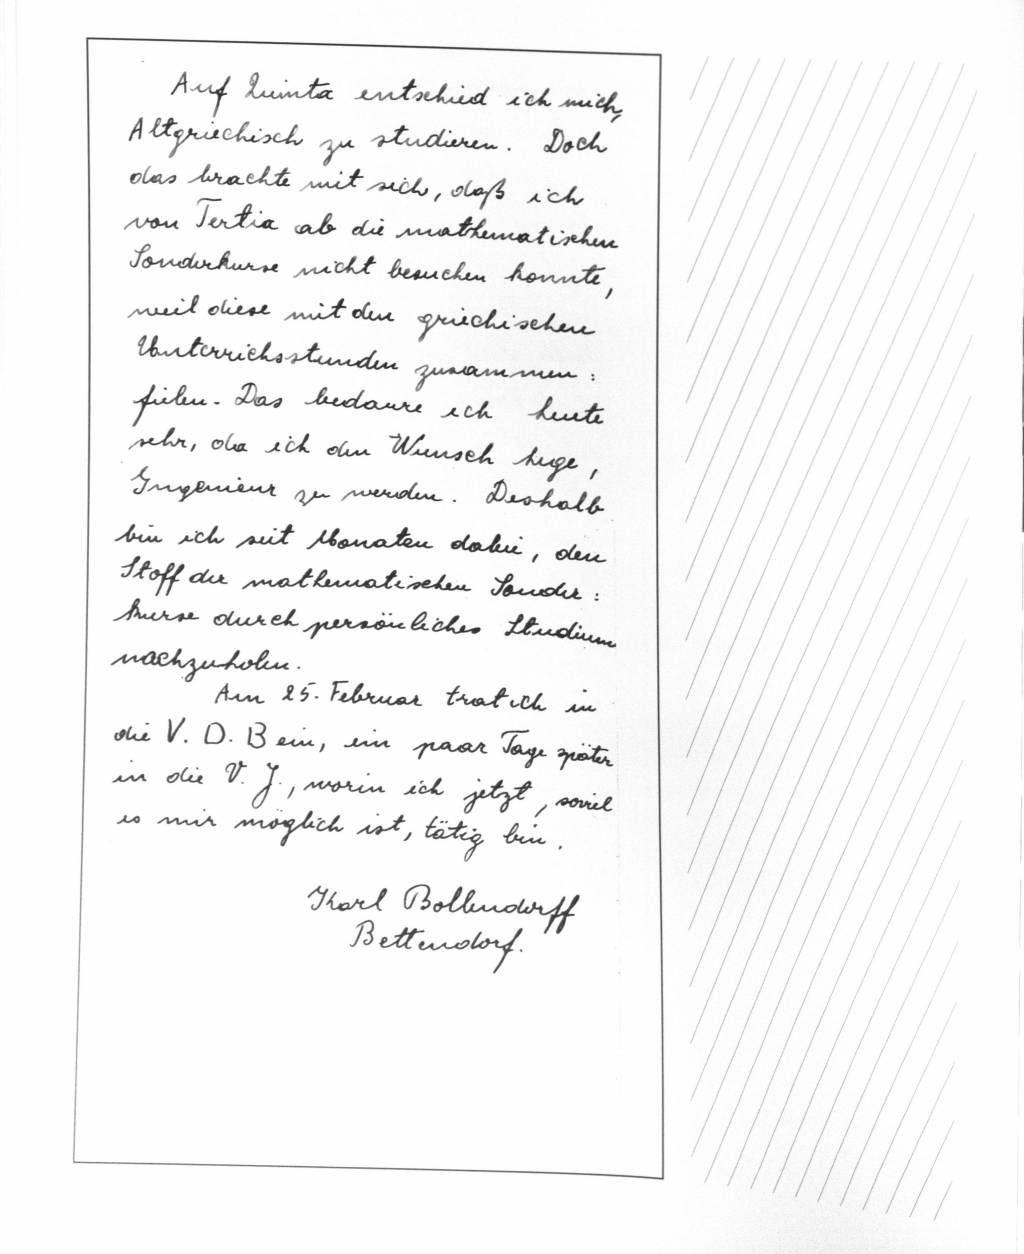 Auf Quinta entschied ich mich,
Altgriechisch zu studieren. Doch
das brachte mit sich, daß ich
von Tertia ab die mathematischen
Sonderkurse nicht besuchen konnte,
weil diese mit den griechischen
Unterrichsstunden zusammen:
fielen. Das bedaure ich heute
sehr, da ich den Wunsch hege,
Ingenieur zu werden. Deshalb
bin ich seit Monaten dabei, den
Stoff der mathematischen Sonder:
kurse durch persönliches Studium
nachzuholen.
Am 25. Februar trat ich in
die V. D. B ein, ein paar Tage später
in die V. J., worin ich jetzt, soviel
es mir möglich ist, tätig bin.
Karl Bollendorff
Bettendorf.